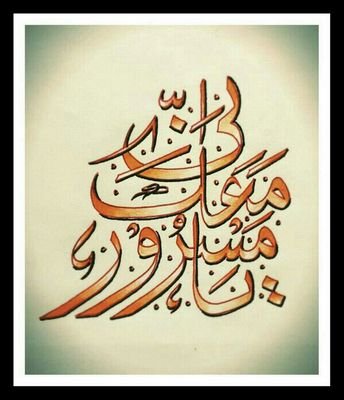 إنّى معك يا مسرور